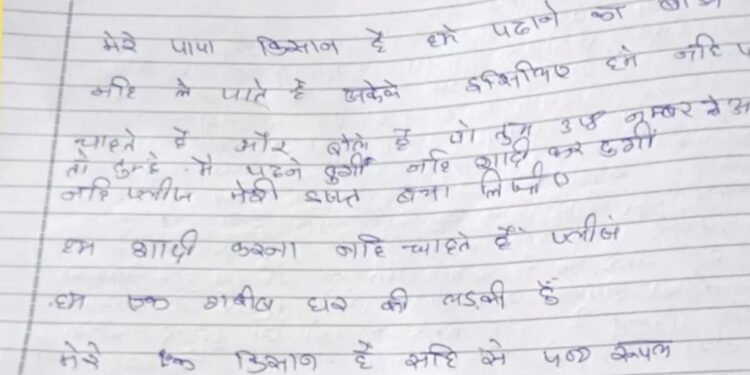 मेरे पापा किसान है हमे पढाने का
नहि ले पाते है अकेले इसिलिए हमे नहि
चाहते है और बोले है जो तुम नम्बर ले
तो तुम्हे मै पढने दुगाँ नहि शादी कर दुगाँ
नहि प्लीज मेरी इज्जत बचा लिजीए
हम शादी करना नहि चाहते हैं प्लीज
हम एक गरीब घर की लडकी हैं
मेरे किसान है सहि से